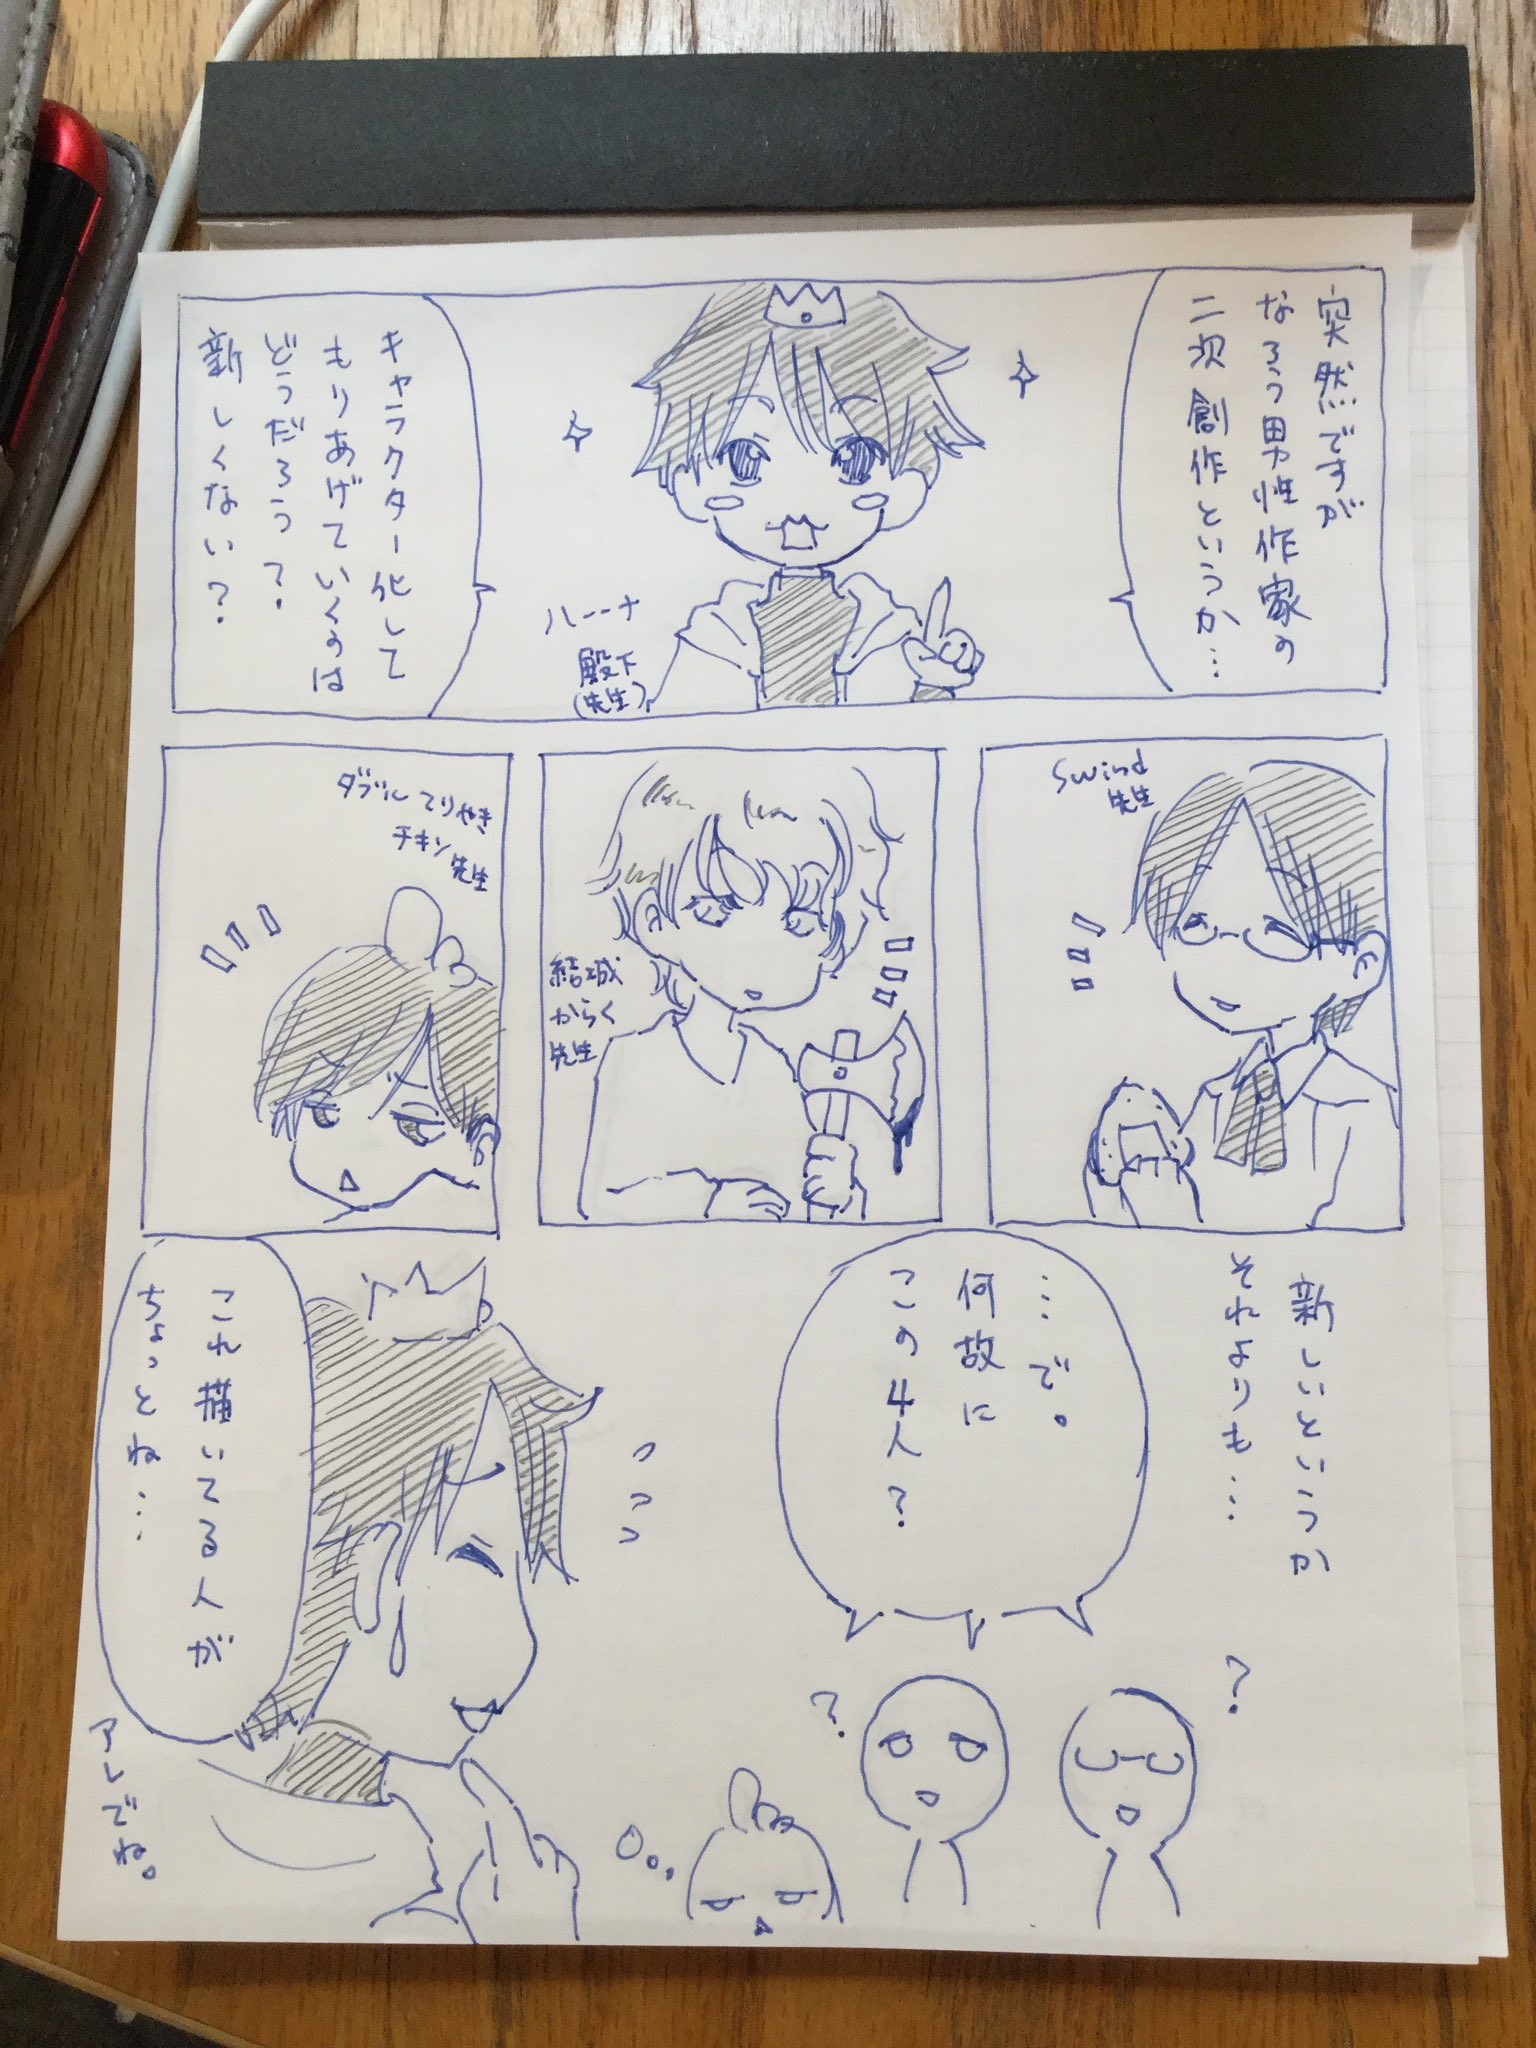 突然ですが
なろう男性作家の
二次創作というか…
キャラクター化して
もりあげていくのは
どうだろう?
新しくない?
ルーナ
殿下
(先生)
Swind
先生
結城
からく
先生
ダブルてりやき
チキン先生
新しいというか
それよりも…
…で。
何故に
この4人?
?
?
これ描いてる人が
ちょっとね…
アレでね。